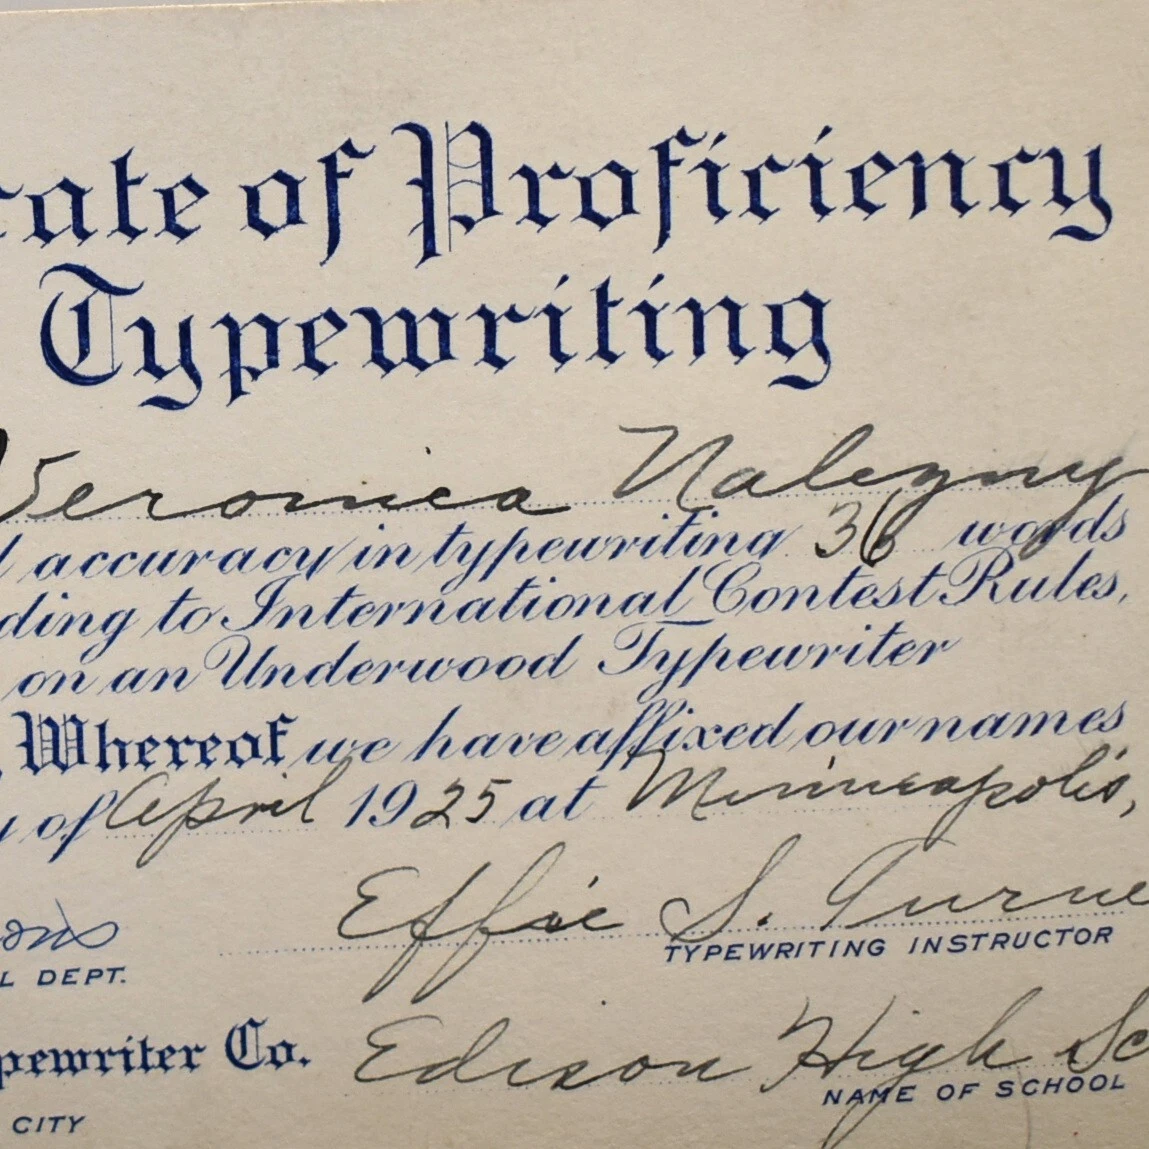 cate of Proficiency
Typewriting
Veronica Nalezny
accuracy in typewriting 36 words
ding to International Contest Rules,
on an Underwood Typewriter
Whereof we have affixed our names
y of April 1925 at Minneapolis,
Effie S. Turne
TYPEWRITING INSTRUCTOR
L DEPT.
pewriter Co. Edison High Sc
NAME OF SCHOOL
CITY